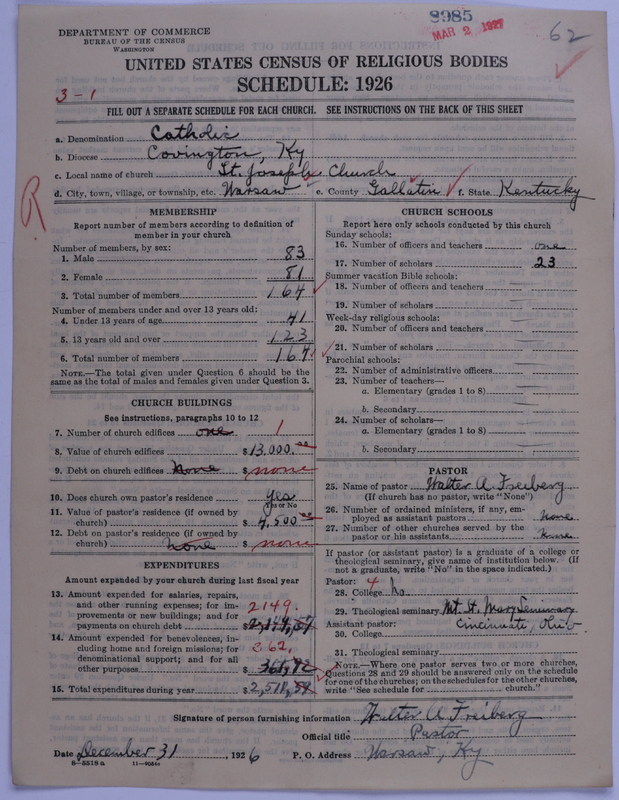 DEPARTMENT OF COMMERCE
BUREAU OF THE CENSUS
WASHINGTON
8985
MAR 2 1927
62
UNITED STATES CENSUS OF RELIGIOUS BODIES
SCHEDULE: 1926
3-1
FILL OUT A SEPARATE SCHEDULE FOR EACH CHURCH. SEE INSTRUCTIONS ON THE BACK OF THIS SHEET
a. Denomination Catholic
b. Diocese Covington, Ky
c. Local name of church St. Joseph Church
d. City, town, village, or township, etc. Warsaw e. County Gallatin f. State Kentucky
R
MEMBERSHIP
Report number of members according to definition of
member in your church
Number of members, by sex:
1. Male 83
2. Female 81
3. Total number of members 164
Number of members under and over 13 years old:
4. Under 13 years of age 41
5. 13 years old and over 123
6. Total number of members 164
NOTE.—The total given under Question 6 should be the
same as the total of males and females given under Question 3.
CHURCH BUILDINGS
See instructions, paragraphs 10 to 12
7. Number of church edifices one 1
8. Value of church edifices $13,000.00
9. Debt on church edifices None $ none
10. Does church own pastor's residence Yes
Yes or No
11. Value of pastor's residence (if owned by
church) $4,500.00
12. Debt on pastor's residence (if owned by
church) none $ none
EXPENDITURES
Amount expended by your church during last fiscal year
13. Amount expended for salaries, repairs,
and other running expenses; for im-
provements or new buildings; and for
payments on church debt 2149. $
14. Amount expended for benevolences, in-
cluding home and foreign missions; for
denominational support; and for all
other purposes 362. $
15. Total expenditures during year $2,511,54
CHURCH SCHOOLS
Report here only schools conducted by this church
Sunday schools:
16. Number of officers and teachers one
17. Number of scholars 23
Summer vacation Bible schools:
18. Number of officers and teachers
19. Number of scholars
Week-day religious schools:
20. Number of officers and teachers
21. Number of scholars
Parochial schools:
22. Number of administrative officers
23. Number of teachers—
a. Elementary (grades 1 to 8)
b. Secondary
24. Number of scholars—
a. Elementary (grades 1 to 8)
b. Secondary
PASTOR
25. Name of pastor Walter A Freiberg
(If church has no pastor, write "None")
26. Number of ordained ministers, if any, em-
ployed as assistant pastors None
27. Number of other churches served by the
pastor or his assistants None
If pastor (or assistant pastor) is a graduate of a college or
theological seminary, give name of institution below. (If
not a graduate, write "No" in the space indicated.)
Pastor: 4
28. College No
29. Theological seminary Mt. St. Mary Seminary
Assistant pastor: Cincinnati, Ohio
30. College
31. Theological seminary
NOTE.—Where one pastor serves two or more churches,
Questions 28 and 29 should be answered only on the schedule
for one of the churches; on the schedules for the other churches,
write "See schedule for church."
Signature of person furnishing information Walter A Freiberg
Official title Pastor
Date December 31, 1926 P. O. Address Warsaw, Ky
8-5518 a